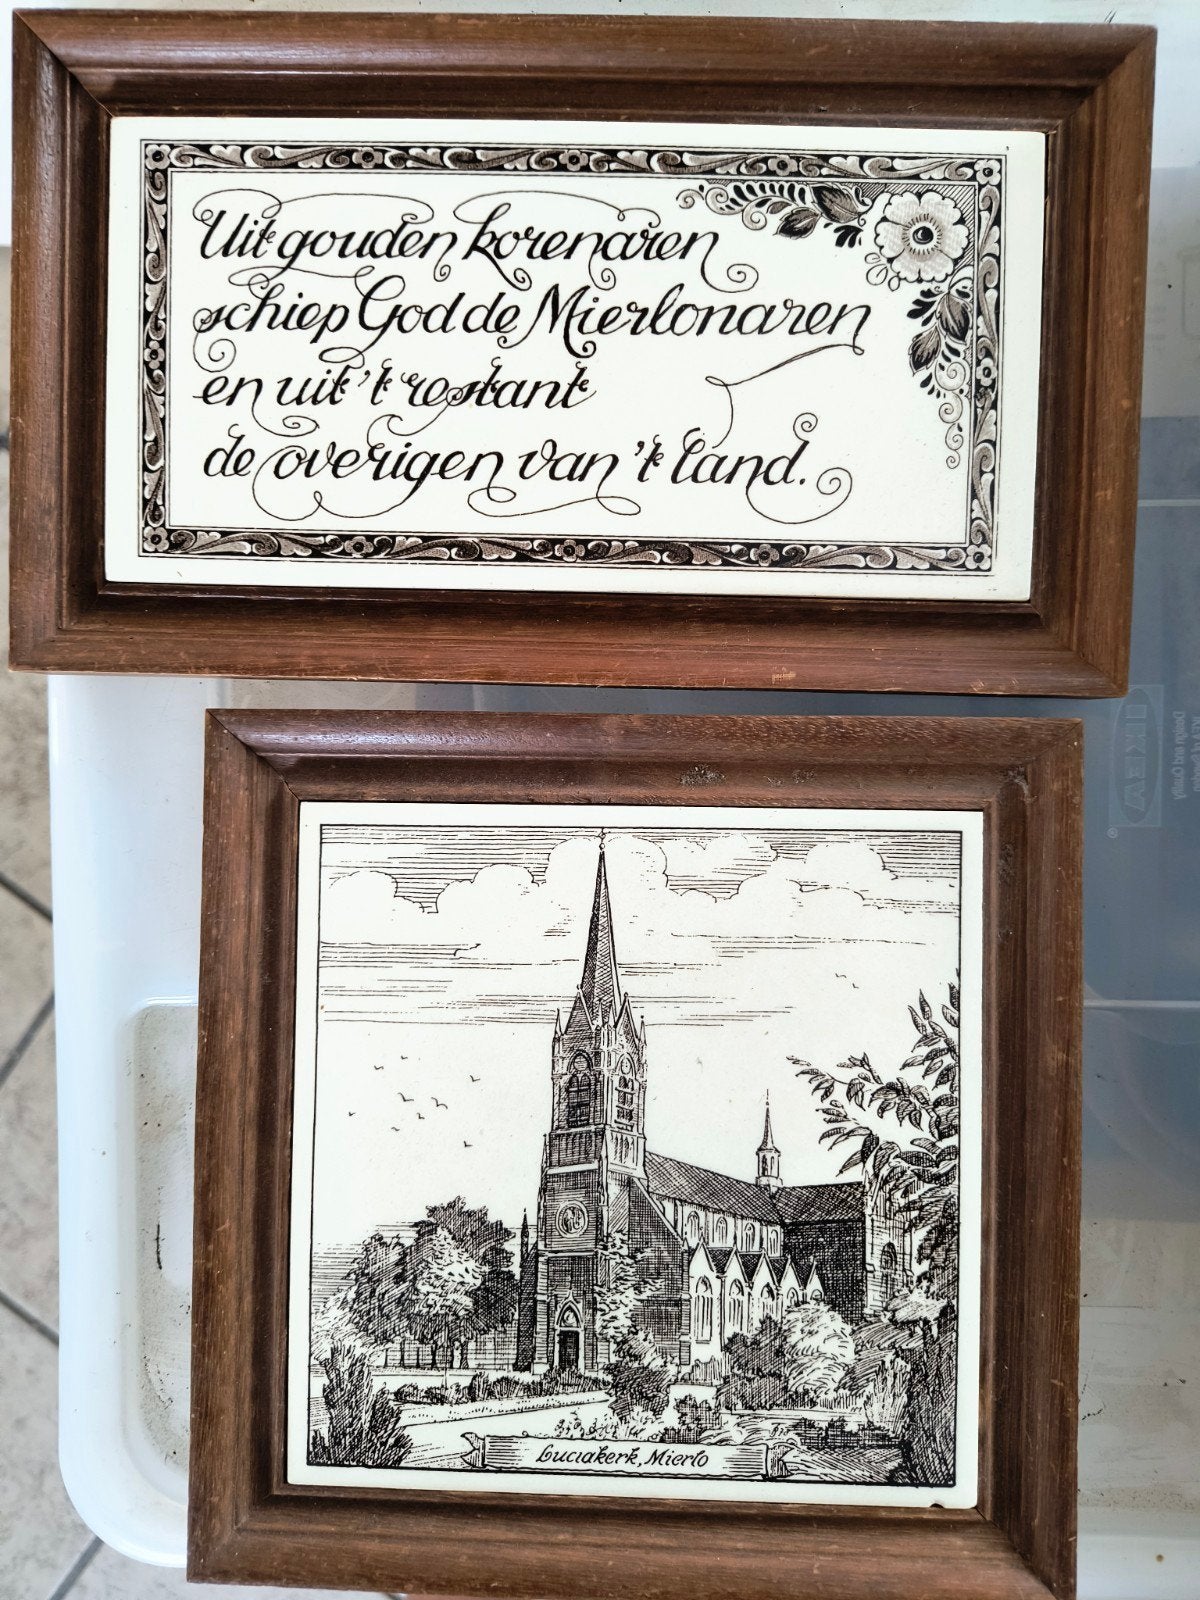 Uit gouden korenaren
schiep God de Mierlonaren
en uit 't restant
de overigen van 't land.
Luciakerk, Mierlo
IKEA
®
Design and Quality